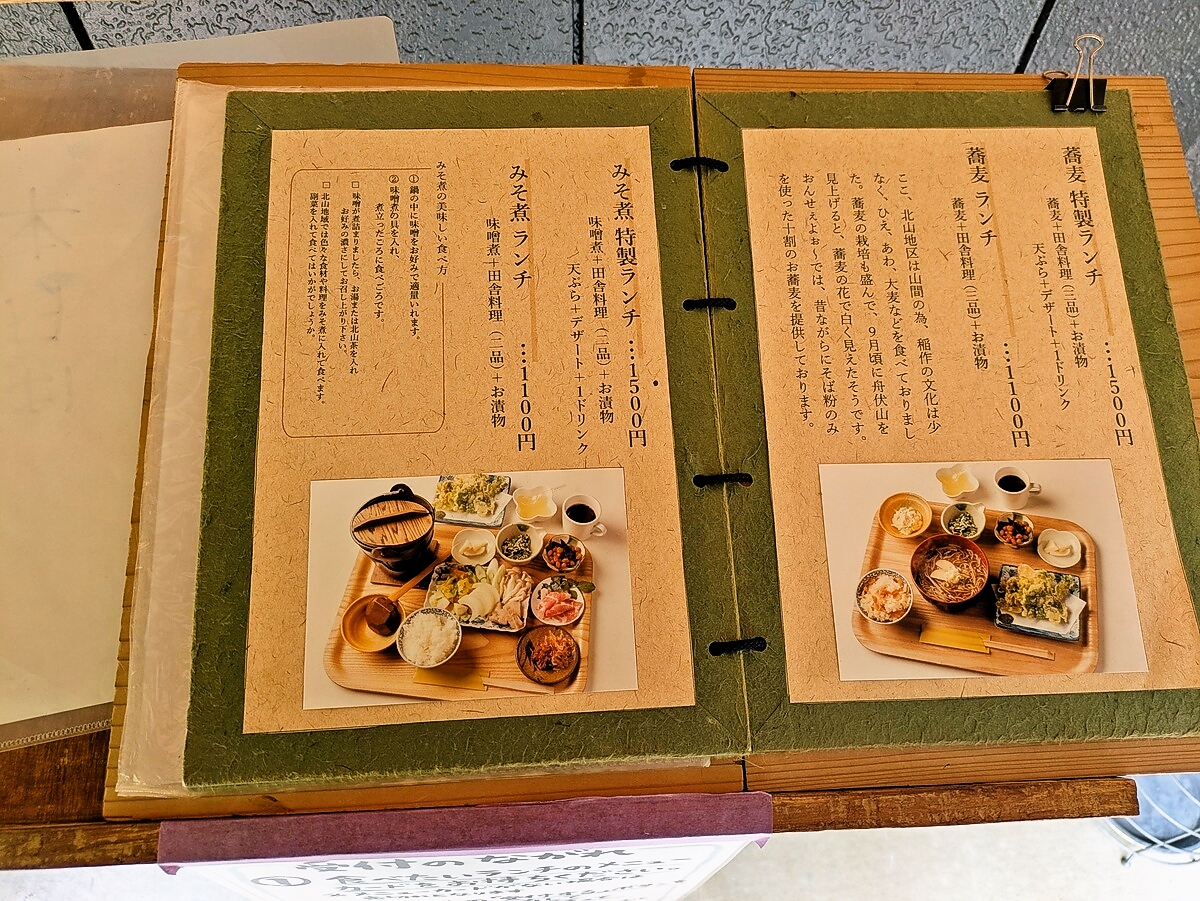 蕎麦 特製ランチ …1500円
蕎麦+田舎料理(三品)+お漬物
天ぷら+デザート+1ドリンク
蕎麦 ランチ …1100円
蕎麦+田舎料理(二品)+お漬物
ここ、北山地区は山間の為、稲作の文化は少
なく、ひえ、あわ、大麦などを食べておりまし
た。蕎麦の栽培も盛んで、9月頃に舟伏山を
見上げると、蕎麦の花で白く見えたそうです。
おんせぇよぉ~では、昔ながらにそば粉のみ
を使った十割のお蕎麦を提供しております。
みそ煮 特製ランチ …1500円
味噌煮+田舎料理(三品)+お漬物
天ぷら+デザート+1ドリンク
みそ煮 ランチ …1100円
味噌煮+田舎料理(二品)+お漬物
みそ煮の美味しい食べ方
① 鍋の中に味噌をお好みで適量いれます。
② 味噌煮の具を入れ、
煮立ったころに食べごろです。
□ 味噌が煮詰まりましたら、お湯または北山茶を入れ
お好みの濃さにしてお召し上がり下さい。
□ 北山地域では色々な食材や料理をみそ煮に入れて食べます。
副菜を入れて食べてはいかがでしょうか。
受付のながれ
① 食べたいランチのメニュー